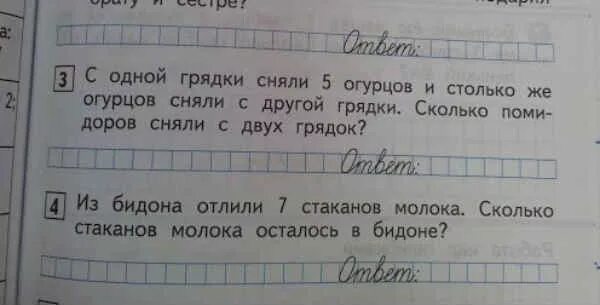 брату и сестре?
Ответ:
3 С одной грядки сняли 5 огурцов и столько же
огурцов сняли с другой грядки. Сколько поми-
доров сняли с двух грядок?
Ответ:
4 Из бидона отлили 7 стаканов молока. Сколько
стаканов молока осталось в бидоне?
Ответ:
а:
2;